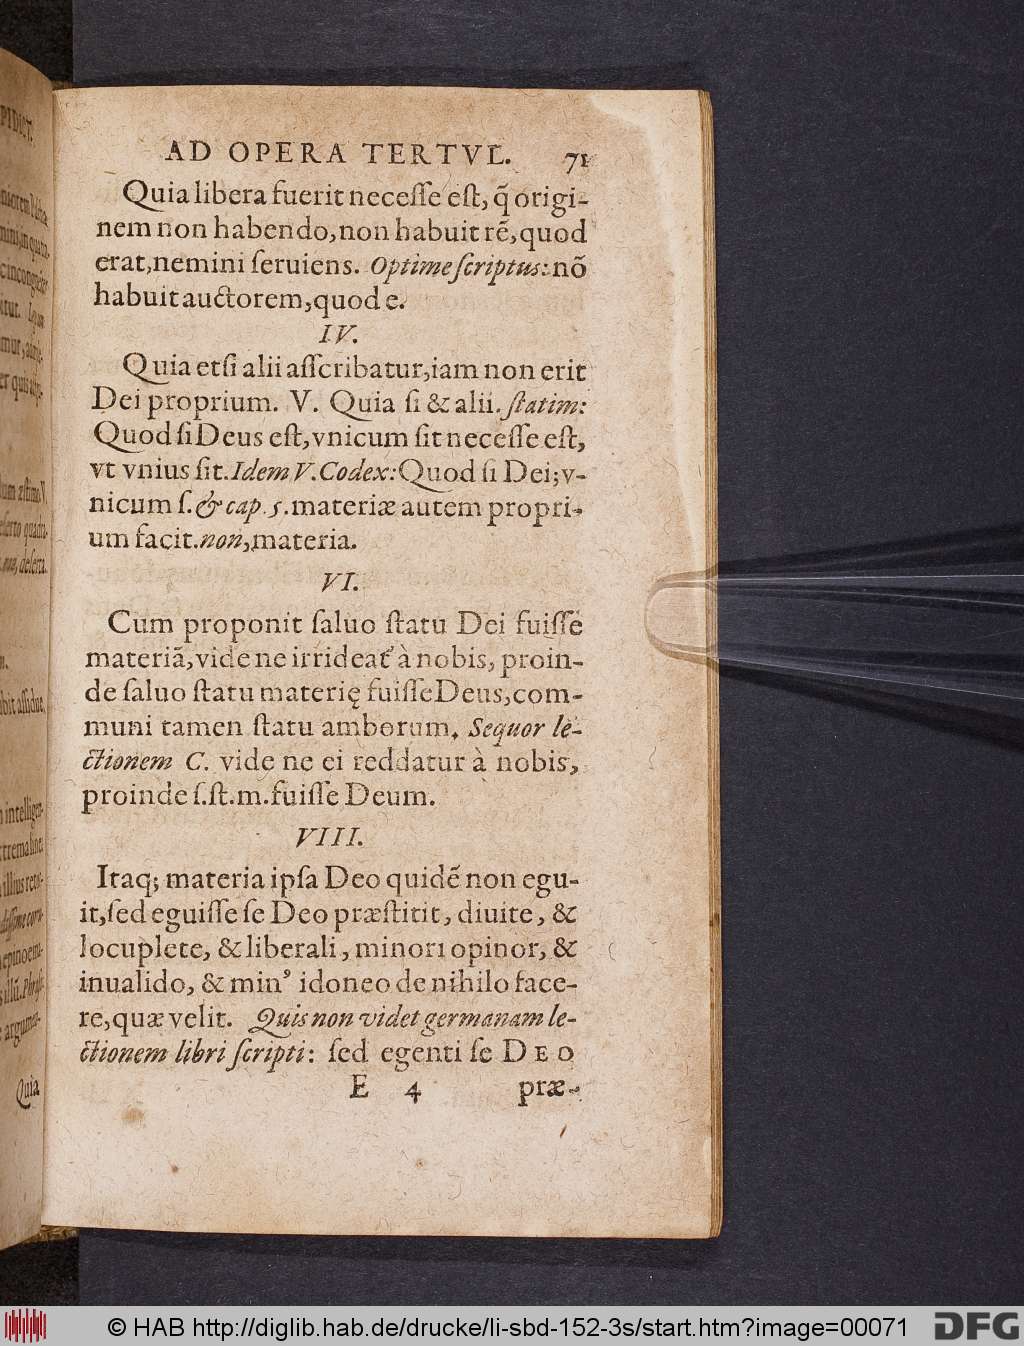 AD OPERA TERTVL. 71
Quia libera fuerit neceſſe eſt, q̃ origi-
nem non habendo, non habuit rẽ, quod
erat, nemini ſeruiens. Optime ſcriptus: nõ
habuit auctorem, quod e.
IV.
Quia etſi alii aſſcribatur, iam non erit
Dei proprium. V. Quia ſi & alii. ſtatim:
Quod ſi Deus eſt, vnicum ſit neceſſe eſt,
vt vnius ſit. Idem V. Codex: Quod ſi Dei; v-
nicum ſ. & cap. 5. materiæ autem propri-
um facit. non, materia.
VI.
Cum proponit ſaluo ſtatu Dei fuiſſe
materiã, vide ne irrideat᷑ à nobis, proin-
de ſaluo ſtatu materię fuiſſe Deus, com-
muni tamen ſtatu amborum. Sequor le-
ctionem C. vide ne ei reddatur à nobis,
proinde ſ. ſt. m. fuiſſe Deum.
VIII.
Itaq; materia ipſa Deo quidẽ non egu-
it, ſed eguiſſe ſe Deo præſtitit, diuite, &
locuplete, & liberali, minori opinor, &
inualido, & minꝰ idoneo de nihilo face-
re, quæ velit. Quis non videt germanam le-
ctionem libri ſcripti: ſed egenti ſe DEO
E 4 præ-
Quia
© HAB http://diglib.hab.de/drucke/li-sbd-152-3s/start.htm?image=00071
DFG